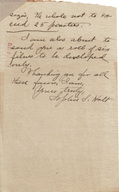 size, the whole not to ex-
ceed 25 piastres.
I am also about to
send you a roll of six
films to be developed
only.
Thanking you for all
these favors, I am
Yours truly,
Sophie S. Holt